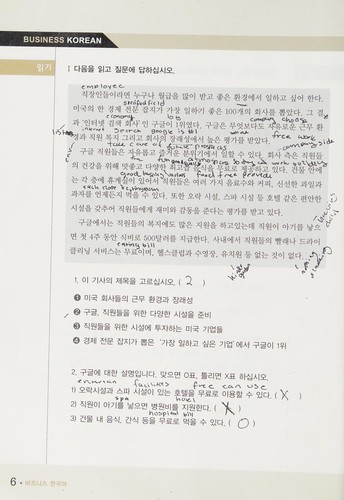 BUSINESS KOREAN
읽기
Ⅰ 다음을 읽고 질문에 답하십시오.
employee
직장인들이라면 누구나 월급을 많이 받고 좋은 환경에서 일하고 싶어 한다.
미국의 한 경제 전문 잡지가 가장 일하기 좋은 100개의 회사를 뽑았다. 그 결
company
company choose
과 '인터넷 검색 회사'인 구글이 1위였다. 구글은 무엇보다도 자유로운 근무 환
internet search google is #1
free work
경과 직원 복지 그리고 회사의 장래성에서 높은 평가를 받았다.
take care of
구글 직원들은 자유롭고 즐거운 분위기에서 일할 수 있다. 회사 측은 직원들
company side
의 건강을 위해 맛좋고 다양한 최고급 음식을 무료로 제공하고 있다. 건물 안에
good
는 각 층에 휴게실이 있어서 직원들은 여러 가지 음료수와 커피, 신선한 과일과
과자를 언제든지 먹을 수 있다. 또한 오락 시설, 스파 시설 등 호텔 같은 편안한
시설을 갖추어 직원들에게 재미와 감동을 준다는 평가를 받고 있다.
구글에서는 직원들의 복지에도 많은 지원을 하고있는데 직원이 아기를 낳으
면 첫 4주 동안 식비로 500달러를 지급한다. 사내에서 직원들의 빨래나 드라이
eating bill
클리닝 서비스는 무료이며, 헬스클럽과 수영장, 유치원 등 없는 것이 없다.
1. 이 기사의 제목을 고르십시오. ( 2 )
❶ 미국 회사들의 근무 환경과 장래성
❷ 구글, 직원들을 위한 다양한 시설을 준비
❸ 직원들을 위한 시설에 투자하는 미국 기업들
❹ 경제 전문 잡지가 뽑은 '가장 일하고 싶은 기업'에서 구글이 1위
2. 구글에 대한 설명입니다. 맞으면 O표, 틀리면 X표 하십시오.
facilities free can use
1) 오락시설과 스파 시설이 있는 호텔을 무료로 이용할 수 있다. ( X )
spa hotel
2) 직원이 아기를 낳으면 병원비를 지원한다. ( X )
hospital bill
3) 건물 내 음식, 간식 등을 무료로 먹을 수 있다. ( O )
6 • 비즈니스 한국어